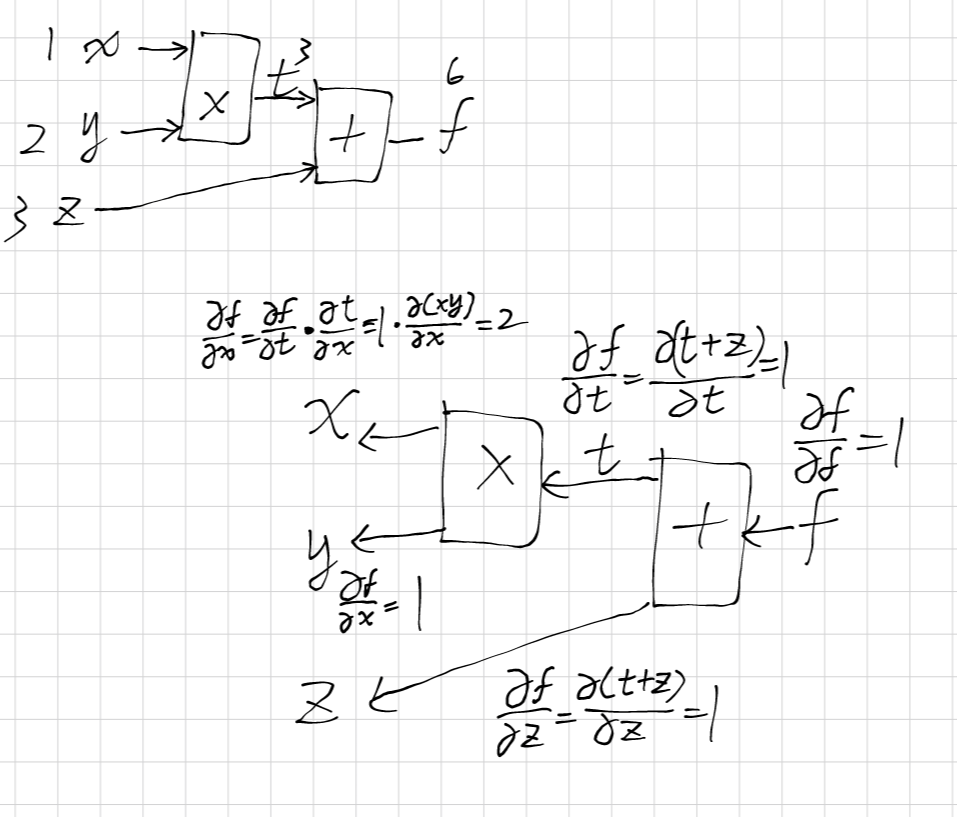 1 x
x
t 3
6
f
2 y
+
3 z
∂f/∂x = ∂f/∂t · ∂t/∂x = 1 · ∂(xy)/∂x = 2
∂f/∂t = ∂(t+z)/∂t = 1
∂f/∂f = 1
x
x
t
+
f
y
∂f/∂x = 1
z
∂f/∂z = ∂(t+z)/∂z = 1